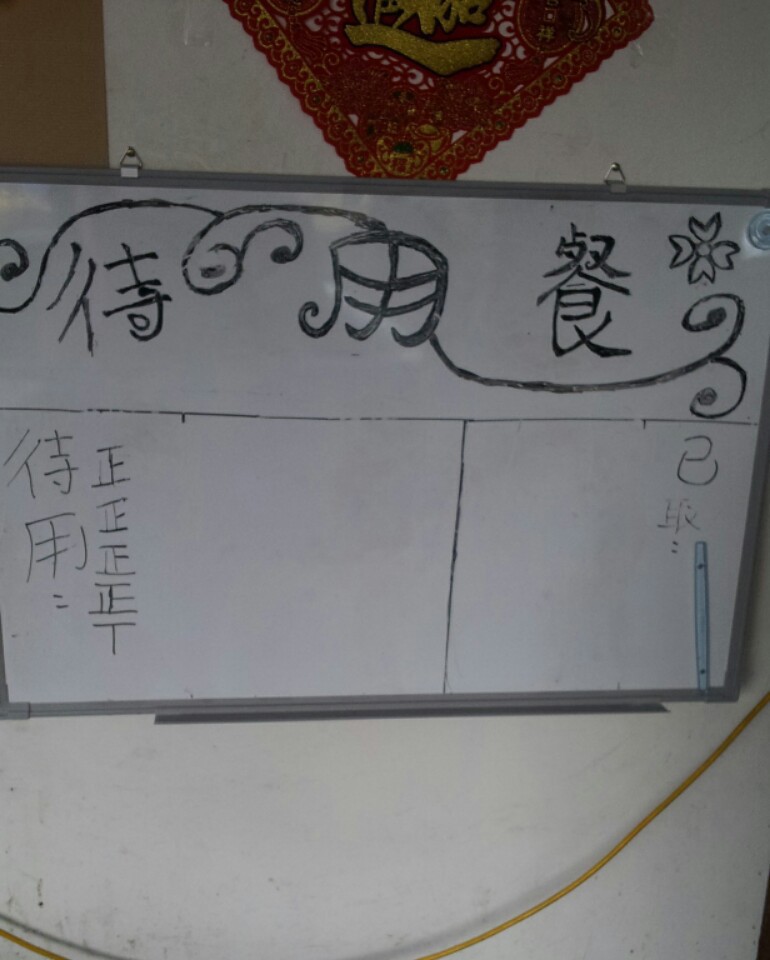 待用餐
待用：
正正正正丅
已取：